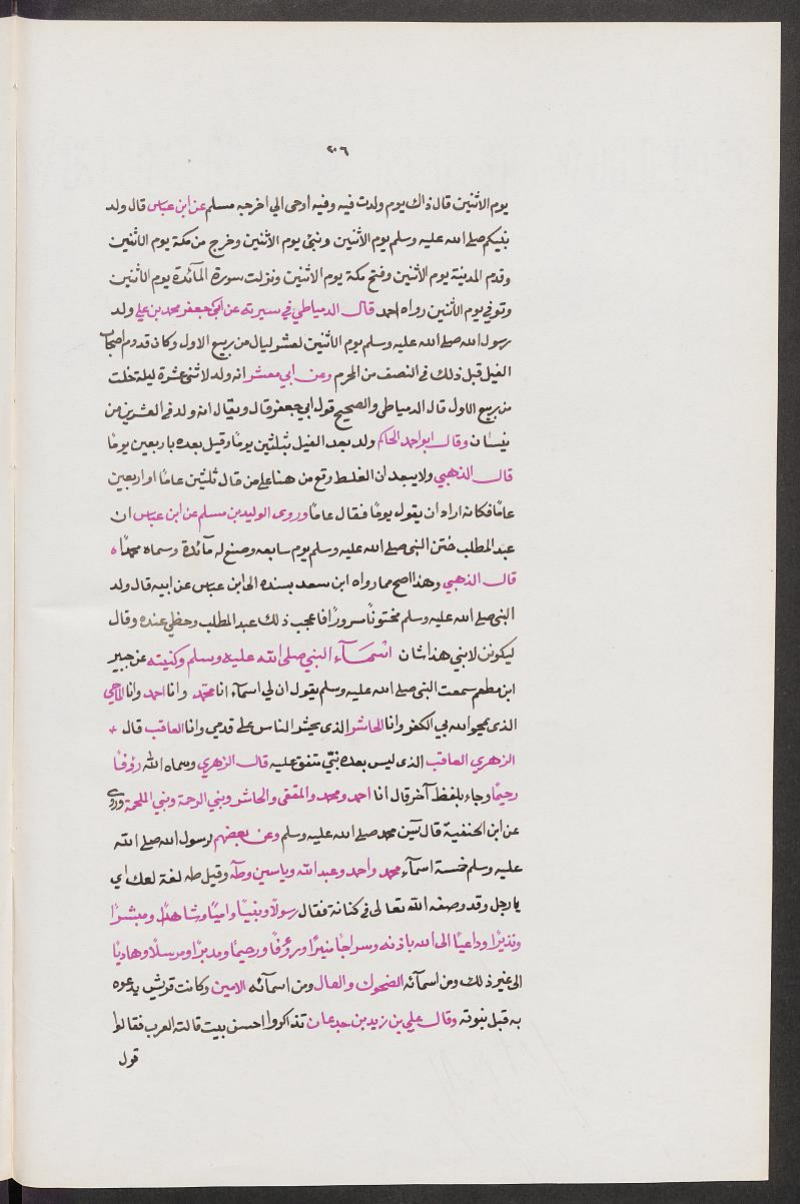 ٢٠٦
يوم الاثنين قال ذاك يوم ولدت فيه وفيه اوحى الي اخرجه مسلم عن ابن عباس قال ولد
نبيكم صلى الله عليه وسلم يوم الاثنين ونبئ يوم الاثنين وخرج من مكة يوم الاثنين
وقدم المدينة يوم الاثنين وفتح مكة يوم الاثنين ونزلت سورة المآئدة يوم الاثنين
وتوفي يوم الاثنين رواه احمد قال الدمياطي في سيرته عن ابي جعفر محمد بن علي ولد
رسول الله صلى الله عليه وسلم يوم الاثنين لعشر ليال من ربيع الاول وكان قدوم اصحاب
الفيل قبل ذلك في النصف من المحرم وعن ابي معشر انه ولد لاثنى عشرة ليلة خلت
من ربيع الاول قال الدمياطي والصحيح قول ابي جعفر قال ويقال انه ولد في العشرين من
نيسان وقال ابو احمد الحاكم ولد بعد الفيل بثلثين يومًا وقيل بعده باربعين يومًا
قال الذهبي ولا يبعد ان الغلط وقع من هنا على من قال ثلثين عامًا او اربعين
عامًا فكانه اراد ان يقول يومًا فقال عامًا وروى الوليد بن مسلم عن ابن عباس ان
عبد المطلب ختن النبي صلى الله عليه وسلم يوم سابعه وصنع له مآئدة وسماه محمدًا ه
قال الذهبي وهذا اصح مما رواه ابن سعد بسنده الى ابن عباس عن ابيه قال ولد
النبي صلى الله عليه وسلم مختونًا مسرورًا فاعجب ذلك عبد المطلب وحظي عنده وقال
ليكونن لابني هذا شان اسمآء النبي صلى الله عليه وسلم وكنيته عن جبير
ابن مطعم سمعت النبي صلى الله عليه وسلم يقول ان لي اسمآء انا محمد وانا احمد وانا الماحي
الذى يمحو الله بي الكفر وانا الحاشر الذى يحشر الناس على قدمي وانا العاقب قال
الزهري العاقب الذى ليس بعده نبي متفق عليه قال الزهري وسماه الله رؤفًا
رحيمًا وجاء بلفظ آخر قال انا احمد ومحمد والمقفى والحاشر ونبي الرحمة ونبي الملحمة وروى
عن ابن الحنفية قال يس محمد صلى الله عليه وسلم وعن بعضهم لرسول الله صلى الله
عليه وسلم خمسة اسمآء محمد واحمد وعبد الله وياسين وطه وقيل طه لغة لعك اي
يا رجل وقد وصفه الله تعالى في كتابه فقال رسولًا ونبيًا واميًا وشاهدًا ومبشرًا
ونذيرًا وداعيًا الى الله باذنه وسراجًا منيرًا ورؤفًا ورحيمًا ومدبرًا ومرسلًا وهاديًا
الى غير ذلك ومن اسمآئه الضحوك والقتال ومن اسمآئه الامين وكانت قريش يدعوه
به قبل نبوته وقال علي بن زيد بن جدعان تذاكروا احسن بيت قالته العرب فقالوا
قول